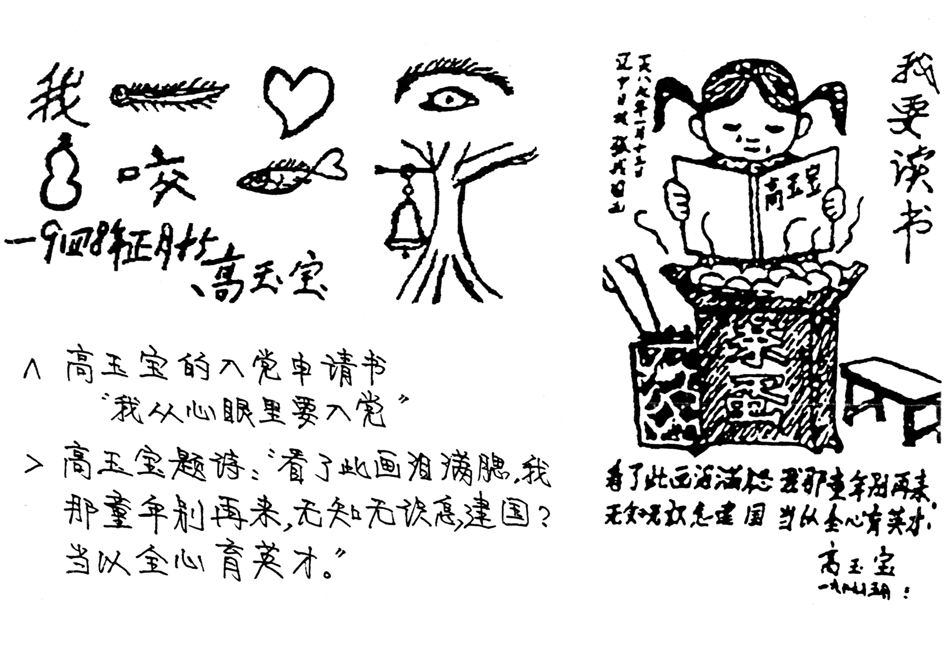 我
咬
一9四8年正月十5
高玉宝
< 高玉宝的入党申请书
“我从心眼里要入党”
> 高玉宝题诗：“看了此画泪满腮，我
那童年别再来，无知无识怎建国？
当以全心育英才。”
我要读书
高玉宝
看了此画泪满腮 我那童年别再来，
无知无识怎建国 当以全心育英才。
高玉宝
一九八七年五月